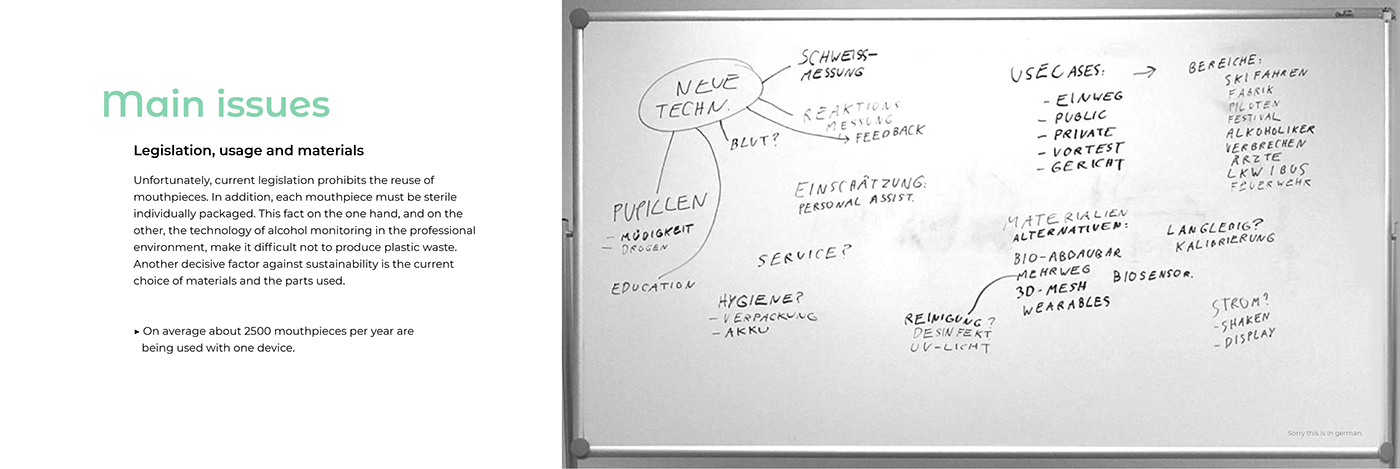 Main issues
Legislation, usage and materials
Unfortunately, current legislation prohibits the reuse of
mouthpieces. In addition, each mouthpiece must be sterile
individually packaged. This fact on the one hand, and on the
other, the technology of alcohol monitoring in the professional
environment, make it difficult not to produce plastic waste.
Another decisive factor against sustainability is the current
choice of materials and the parts used.
▸ On average about 2500 mouthpieces per year are
being used with one device.
NEUE
TECHN.
SCHWEISS-
MESSUNG
REAKTIONS
MESSUNG
FEEDBACK
BLUT?
PUPILLEN
- MÜDIGKEIT
- DROGEN
EDUCATION
EINSCHÄTZUNG:
PERSONAL ASSIST.
SERVICE?
HYGIENE?
- VERPACKUNG
- AKKU
USECASES: →
- EINWEG
- PUBLIC
- PRIVATE
- VORTEST
- GERICHT
BEREICHE:
SKIFAHREN
FABRIK
PILOTEN
FESTIVAL
ALKOHOLIKER
VERBRECHEN
ÄRZTE
LKW / BUS
FEUERWEHR
MATERIALIEN
ALTERNATIVEN:
BIO-ABDAUBAR
MEHRWEG
3D-MESH
WEARABLES
BIOSENSOR.
REINIGUNG?
DESINFEKT
UV-LICHT
LANGLEBIG?
KALIBRIERUNG
STROM?
- SHAKEN
- DISPLAY
Sorry this is in german.